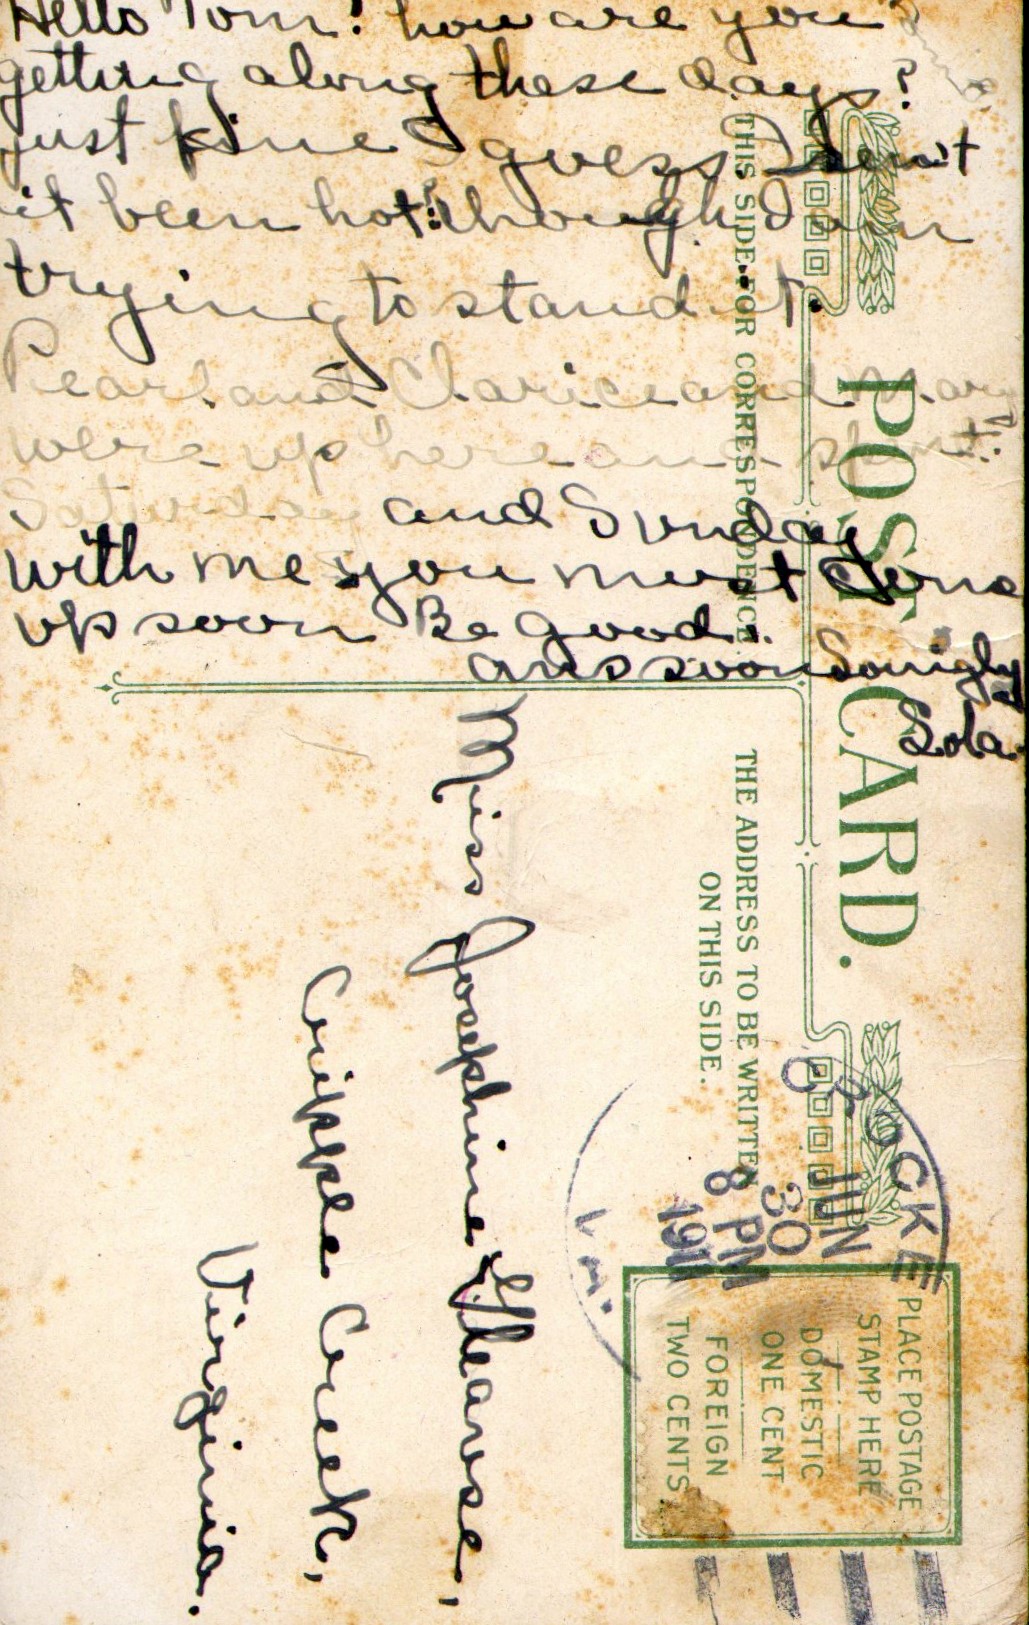 Hello Tom! how are you
getting along these days?
just fine I guess, Isen't
it been hot? though I am
trying to stand it.
Pearl and Clarice and Mary
were up here and spent
Saturday and Sunday
with me you must come
up soon Be good.
ans soon
Lola
POST CARD.
THIS SIDE FOR CORRESPONDENCE.
THE ADDRESS TO BE WRITTEN
ON THIS SIDE.
JUN
30
8 PM
191
Va.
PLACE POSTAGE
STAMP HERE
DOMESTIC
ONE CENT
FOREIGN
TWO CENTS
Miss Josephine
Cripple Creek,
Virginia.